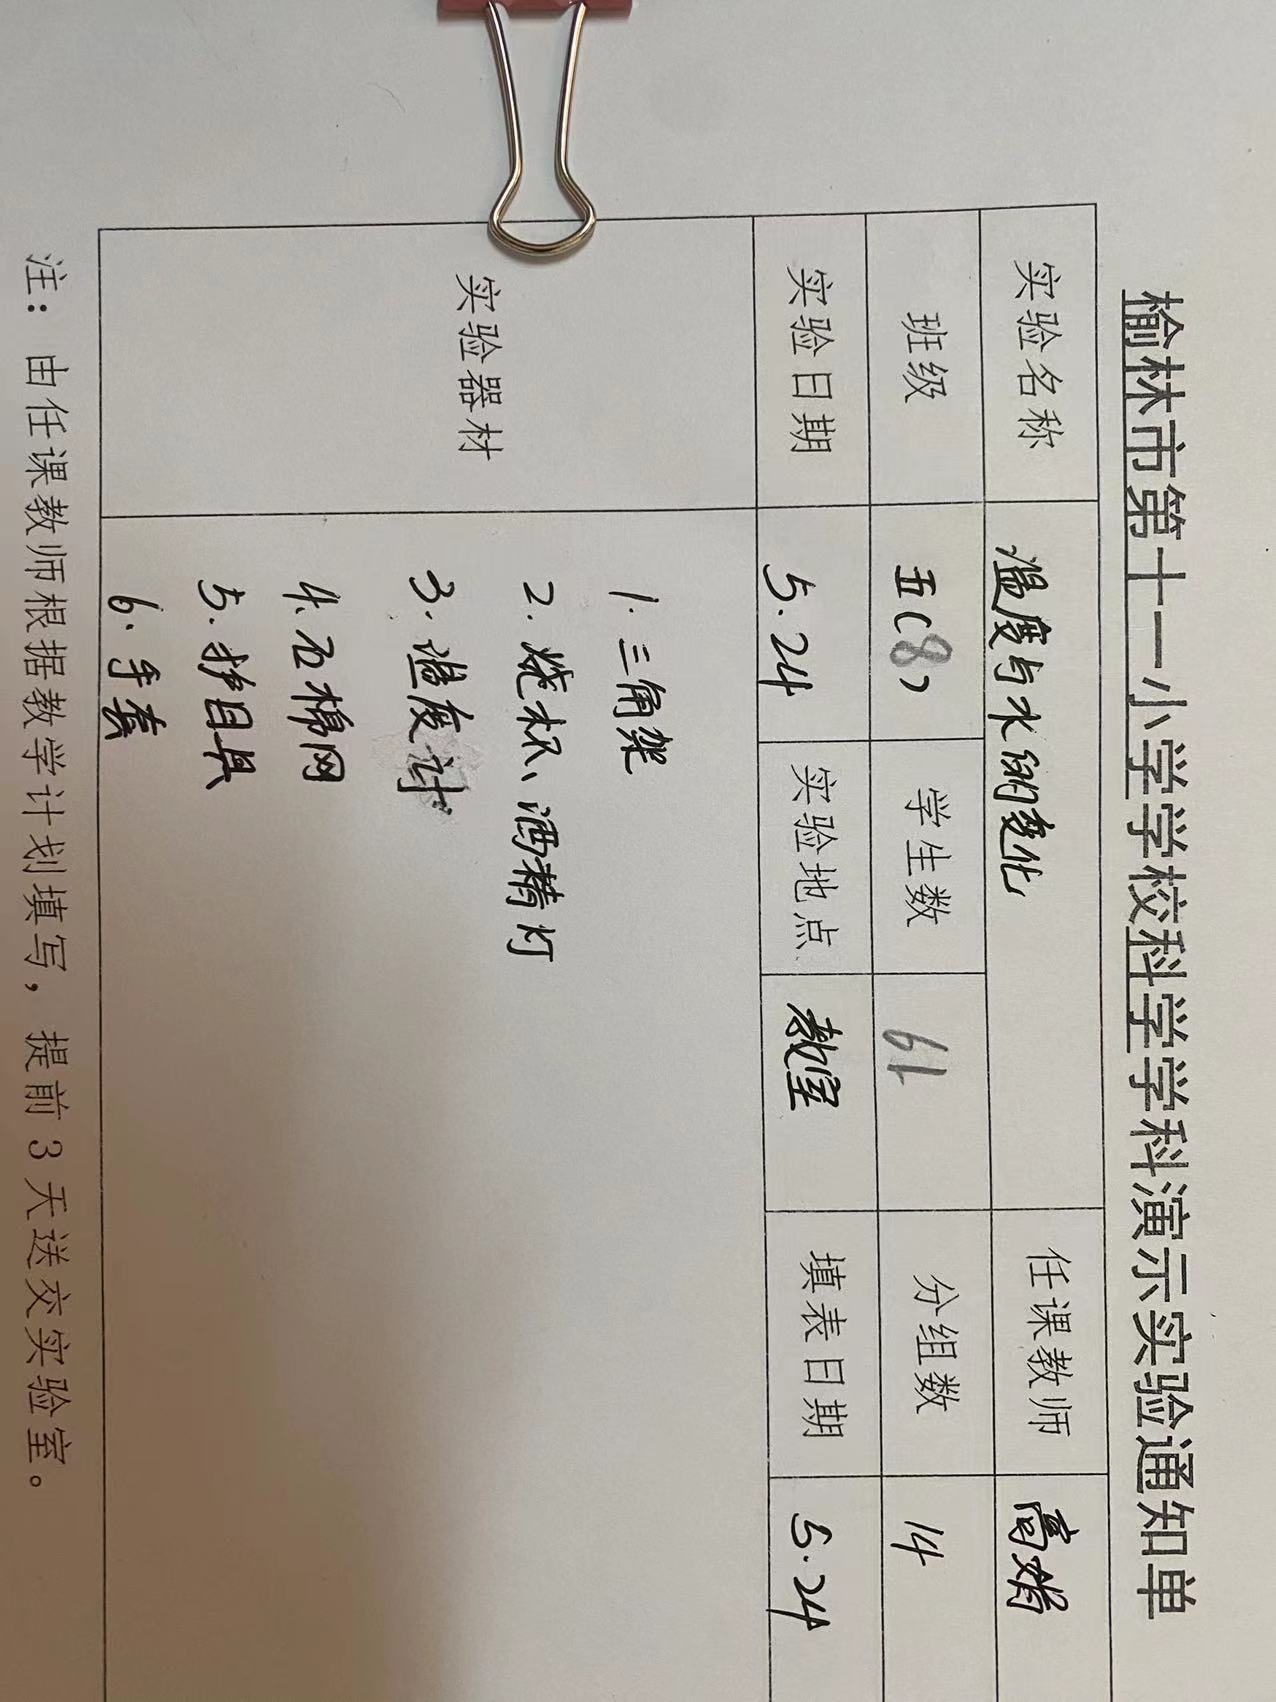 榆林市第十一小学学校科学学科演示实验通知单
实验名称 温度与水的变化 任课教师 高娟
班级 五(8) 学生数 61 分组数 14
实验日期 5.24 实验地点 教室 填表日期 5.24
实验器材
1.三角架
2.烧杯、酒精灯
3.温度计
4.石棉网
5.护目具
6.手套
注：由任课教师根据教学计划填写，提前3天送交实验室。